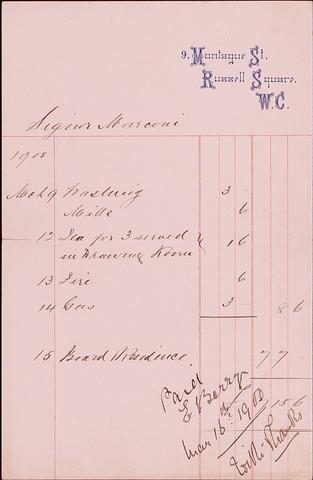 9, Montague St.
Russell Square.
W.C.
Signor Marconi
1900
Mch 9 Washing 3 -
Milk 6
12 Tea for 3 served } 1 6
in Drawing Room
13 Fire 6
14 Gas 3 - 8 6
15 Board Residence 7 7 -
Paid
E Berry
Mar 16th 1900 15 6
With Thanks